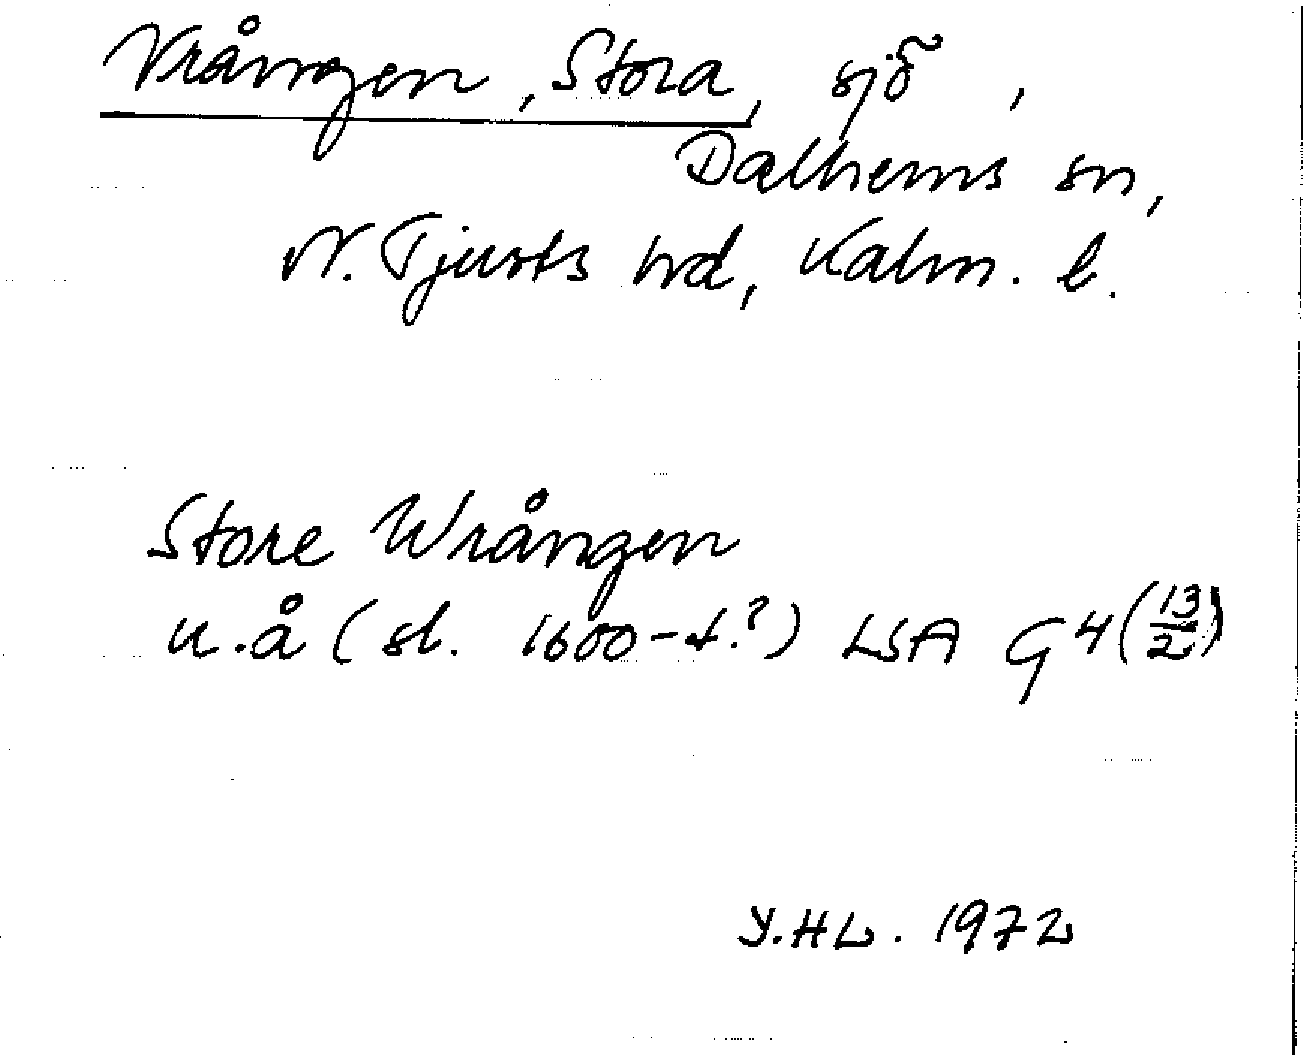 Vrången, Stora, sjö,
Dalhems sn,
N. Tjusts hd, Kalm. l.
Store Wrången
u.å (sl. 1600-t.?) LSA G 4 (13/2)
Y.HL. 1972